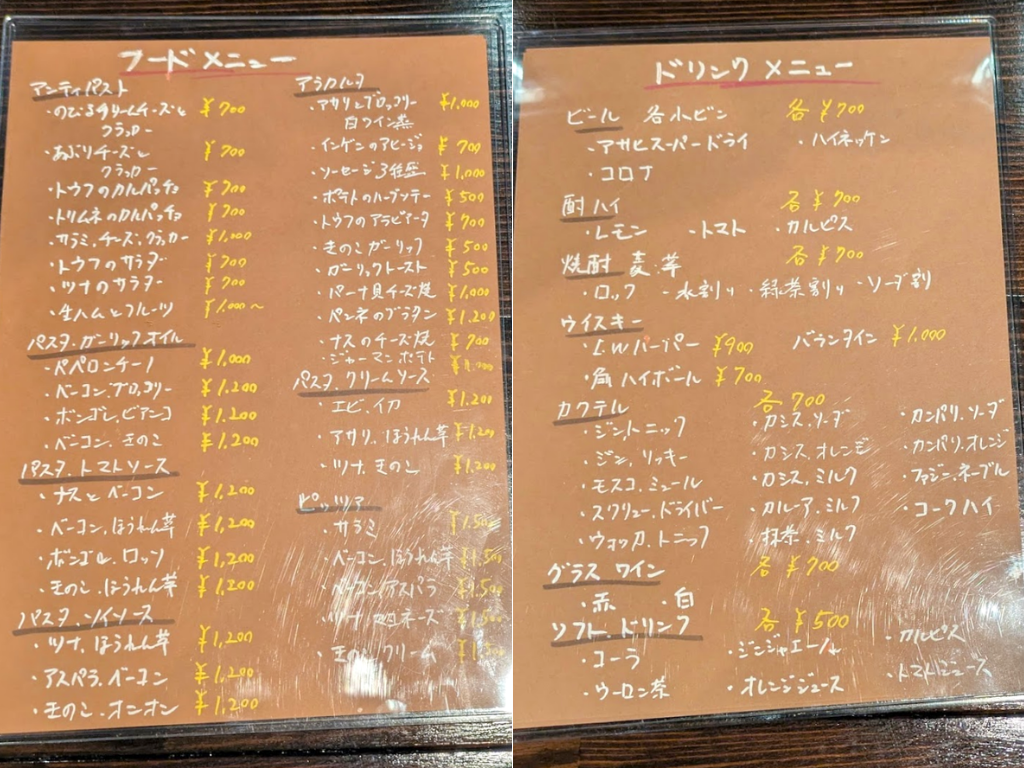 フードメニュー
アンティパスト
・のびるチリームチーズと ¥700
クラッカー
・あぶりチーズと ¥700
クラッカー
・トウフのカルパッチョ ¥700
・トリムネのカルパッチョ ¥700
・サラミ、チーズ、クラッカー ¥1,000
・トウフのサラダ ¥700
・ツナのサラダー ¥700
・生ハムとフルーツ ¥1,000〜
パスタ、ガーリックオイル
・ペペロンチーノ ¥1,000
・ベーコン、ブロッコリー ¥1,200
・ボンゴレ、ビアンコ ¥1,200
・ベーコン、きのこ ¥1,200
パスタ、トマトソース
・ナスとベーコン ¥1,200
・ベーコン、ほうれん草 ¥1,200
・ボンゴレ、ロッソ ¥1,200
・きのこ、ほうれん草 ¥1,200
パスタ、ソイソース
・ツナ、ほうれん草 ¥1,200
・アスパラ、ベーコン ¥1,200
・きのこ、オニオン ¥1,200
アラカルタ
・アサリとブロッコリー ¥1,000
白ワイン蒸
・インゲンのアヒージョ ¥700
・ソーセージ3種盛 ¥1,000
・ポテトのハーブソテー ¥500
・トウフのアラビアータ ¥700
・きのこガーリック ¥500
・ガーリックトースト ¥500
・パーナ貝チーズ焼 ¥1,000
・ペンネのグラタン ¥1,200
・ナスのチーズ焼 ¥700
・ジャーマンポテト ¥1,000
パスタ、クリームソース
・エビ、イカ ¥1,200
・アサリ、ほうれん草 ¥1,200
・ツナ、きのこ ¥1,200
ピッツァ
・サラミ ¥1,500
・ベーコン、ほうれん草 ¥1,500
・ベーコン、アスパラ ¥1,500
・ツナ、マヨネーズ ¥1,500
・きのこ、クリーム ¥1,500
ドリンクメニュー
ビール 各小ビン 各¥700
・アサヒスーパードライ ・ハイネッケン
・コロナ
酎ハイ 各¥700
・レモン ・トマト ・カルピス
焼酎 麦、芋 各¥700
・ロック ・水割り ・緑茶割り ・ソーダ割
ウイスキー
・I.Wハーパー ¥900 バランタイン ¥1,000
・角ハイボール ¥700
カクテル 各700
・ジン、トニック ・カシス、ソーダ ・カンパリ、ソーダ
・ジン、リッキー ・カシス、オレンジ ・カンパリ、オレンジ
・モスコ、ミュール ・カシス、ミルク ・ファジー、ネーブル
・スクリュー、ドライバー ・カルーア、ミルク ・コークハイ
・ウォッカ、トニック ・抹茶、ミルク
グラスワイン 各¥700
・赤 ・白
ソフト、ドリンク 各¥500
・コーラ ・ジンジャエール ・カルピス
・ウーロン茶 ・オレンジジュース ・トマトジュース